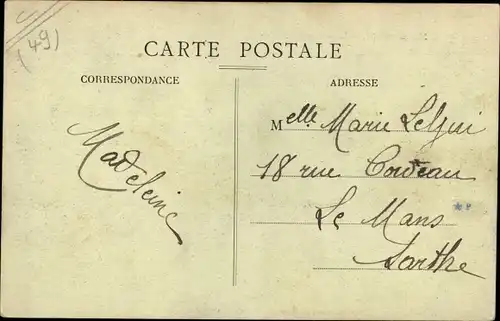 (49)
CARTE POSTALE
CORRESPONDANCE
ADRESSE
Madeleine
Melle Marie
18 rue
Le Mans
Sarthe